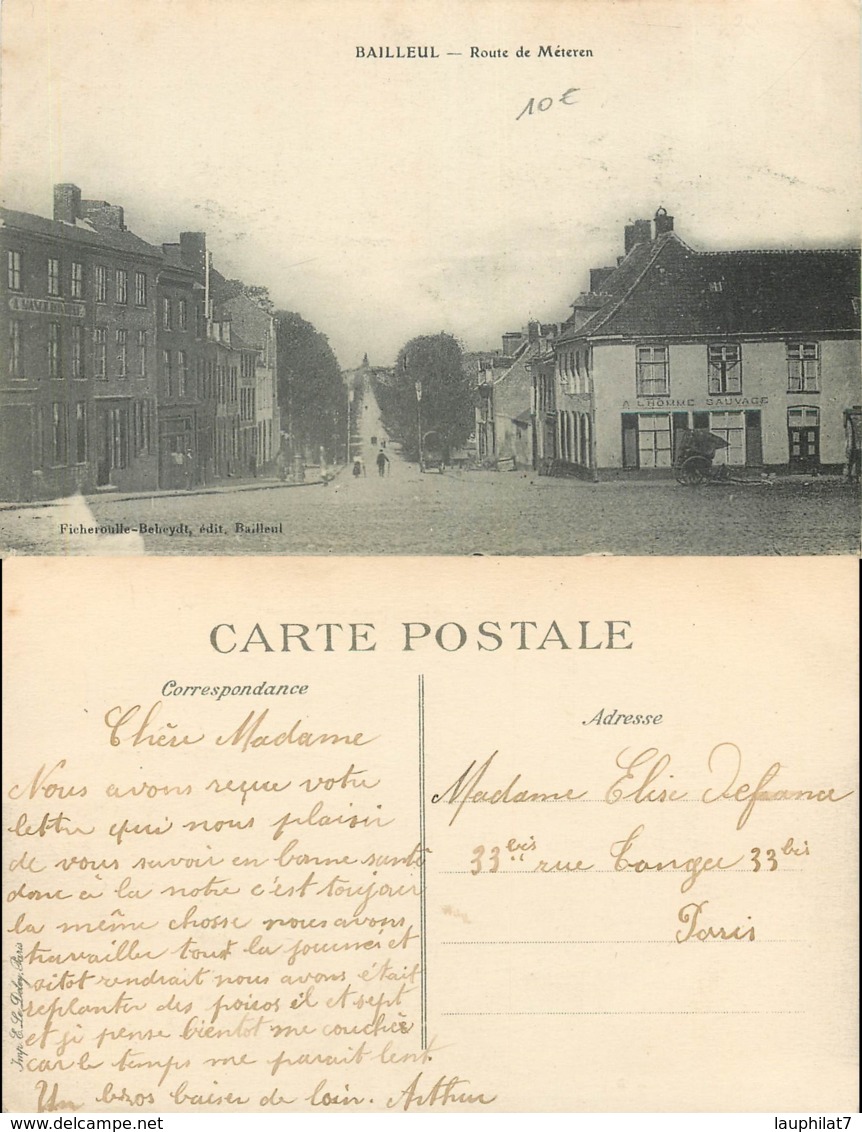 BAILLEUL — Route de Méteren
10€
A L'HOMME SAUVAGE
Ficheroulle-Beheydt, édit. Bailleul
CARTE POSTALE
Correspondance
Adresse
Chère Madame
Nous avons reçue votre
lettre qui nous plaisir
de vous savoir en bonne santé
donc à la notre c'est toujour
la même chosse nous avons
travailler tout la journeé et
sitot rendrait nous avons était
replanter des poisos il et sept
et ji pense bientot me couchée
car le temps me parait lent.
Un bros baiser de loin. Arthur
Madame Elise Defrance
33 bis rue 33 bis
Paris
Imp. E. Le Deley, Paris
lauphilat7